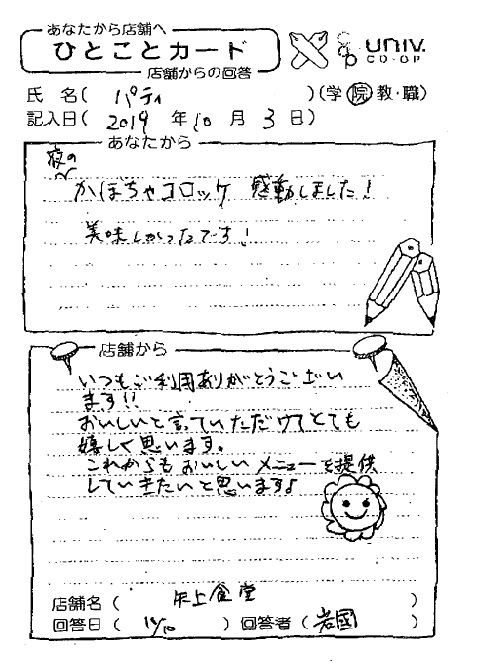 あなたから店舗へ
ひとことカード
店舗からの回答
UNIV.
CO-OP
氏名( パティ )(学・院・教・職)
記入日( 2019 年 10 月 3 日)
あなたから
夜の
かぼちゃコロッケ 感動しました!
美味しかったです!
店舗から
いつもご利用ありがとうござい
ます!!
おいしいと言っていただけてとても
嬉しく思います。
これからもおいしいメニューを提供
していきたいと思います♪
店舗名( 矢上食堂 )
回答日( 10/10 ) 回答者( 岩國 )